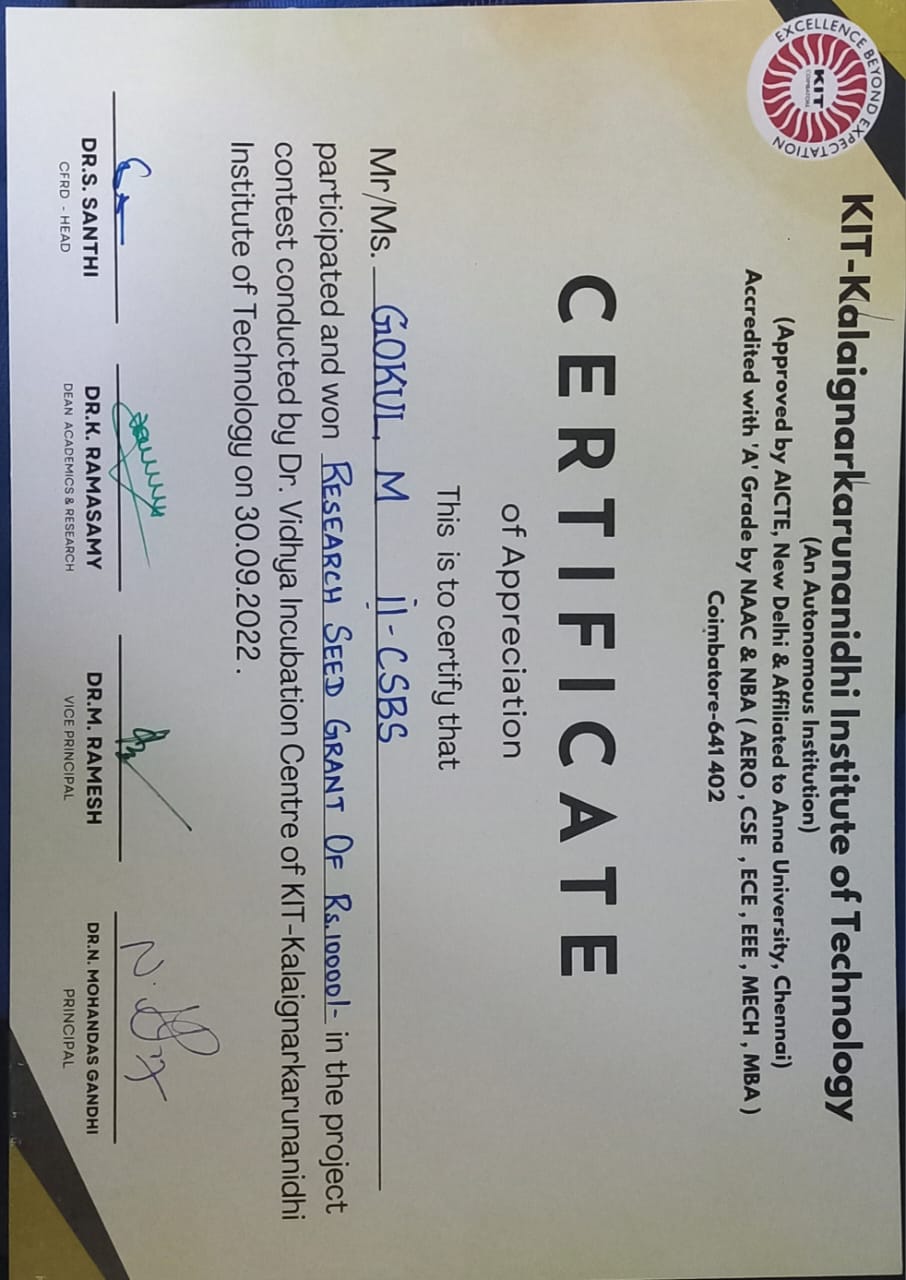 EXCELLENCE BEYOND EXPECTATION
KIT
COIMBATORE
KIT-Kalaignarkarunanidhi Institute of Technology
(An Autonomous Institution)
(Approved by AICTE, New Delhi & Affiliated to Anna University, Chennai)
Accredited with 'A' Grade by NAAC & NBA ( AERO , CSE , ECE , EEE , MECH , MBA )
Coimbatore-641 402
CERTIFICATE
of Appreciation
This is to certify that
Mr/Ms. GOKUL. M II-CSBS
participated and won RESEARCH SEED GRANT OF Rs.10000/- in the project
contest conducted by Dr. Vidhya Incubation Centre of KIT-Kalaignarkarunanidhi
Institute of Technology on 30.09.2022 .
DR.S. SANTHI
CFRD - HEAD
DR.K. RAMASAMY
DEAN ACADEMICS & RESEARCH
DR.M. RAMESH
VICE PRINCIPAL
DR.N. MOHANDAS GANDHI
PRINCIPAL